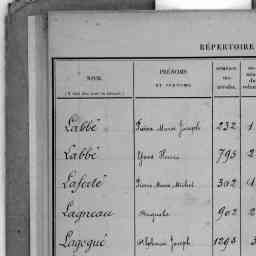 RÉPERTOIRE
NOMS. PRÉNOMS ET SURNOMS
Labbé Pierre Marie Joseph 232 1
Labbé Yves Henri 795 2
Laferté Pierre Marie Michel 302
Lagneau Auguste 902 2
Lagogué Alphonse Joseph 1298 3